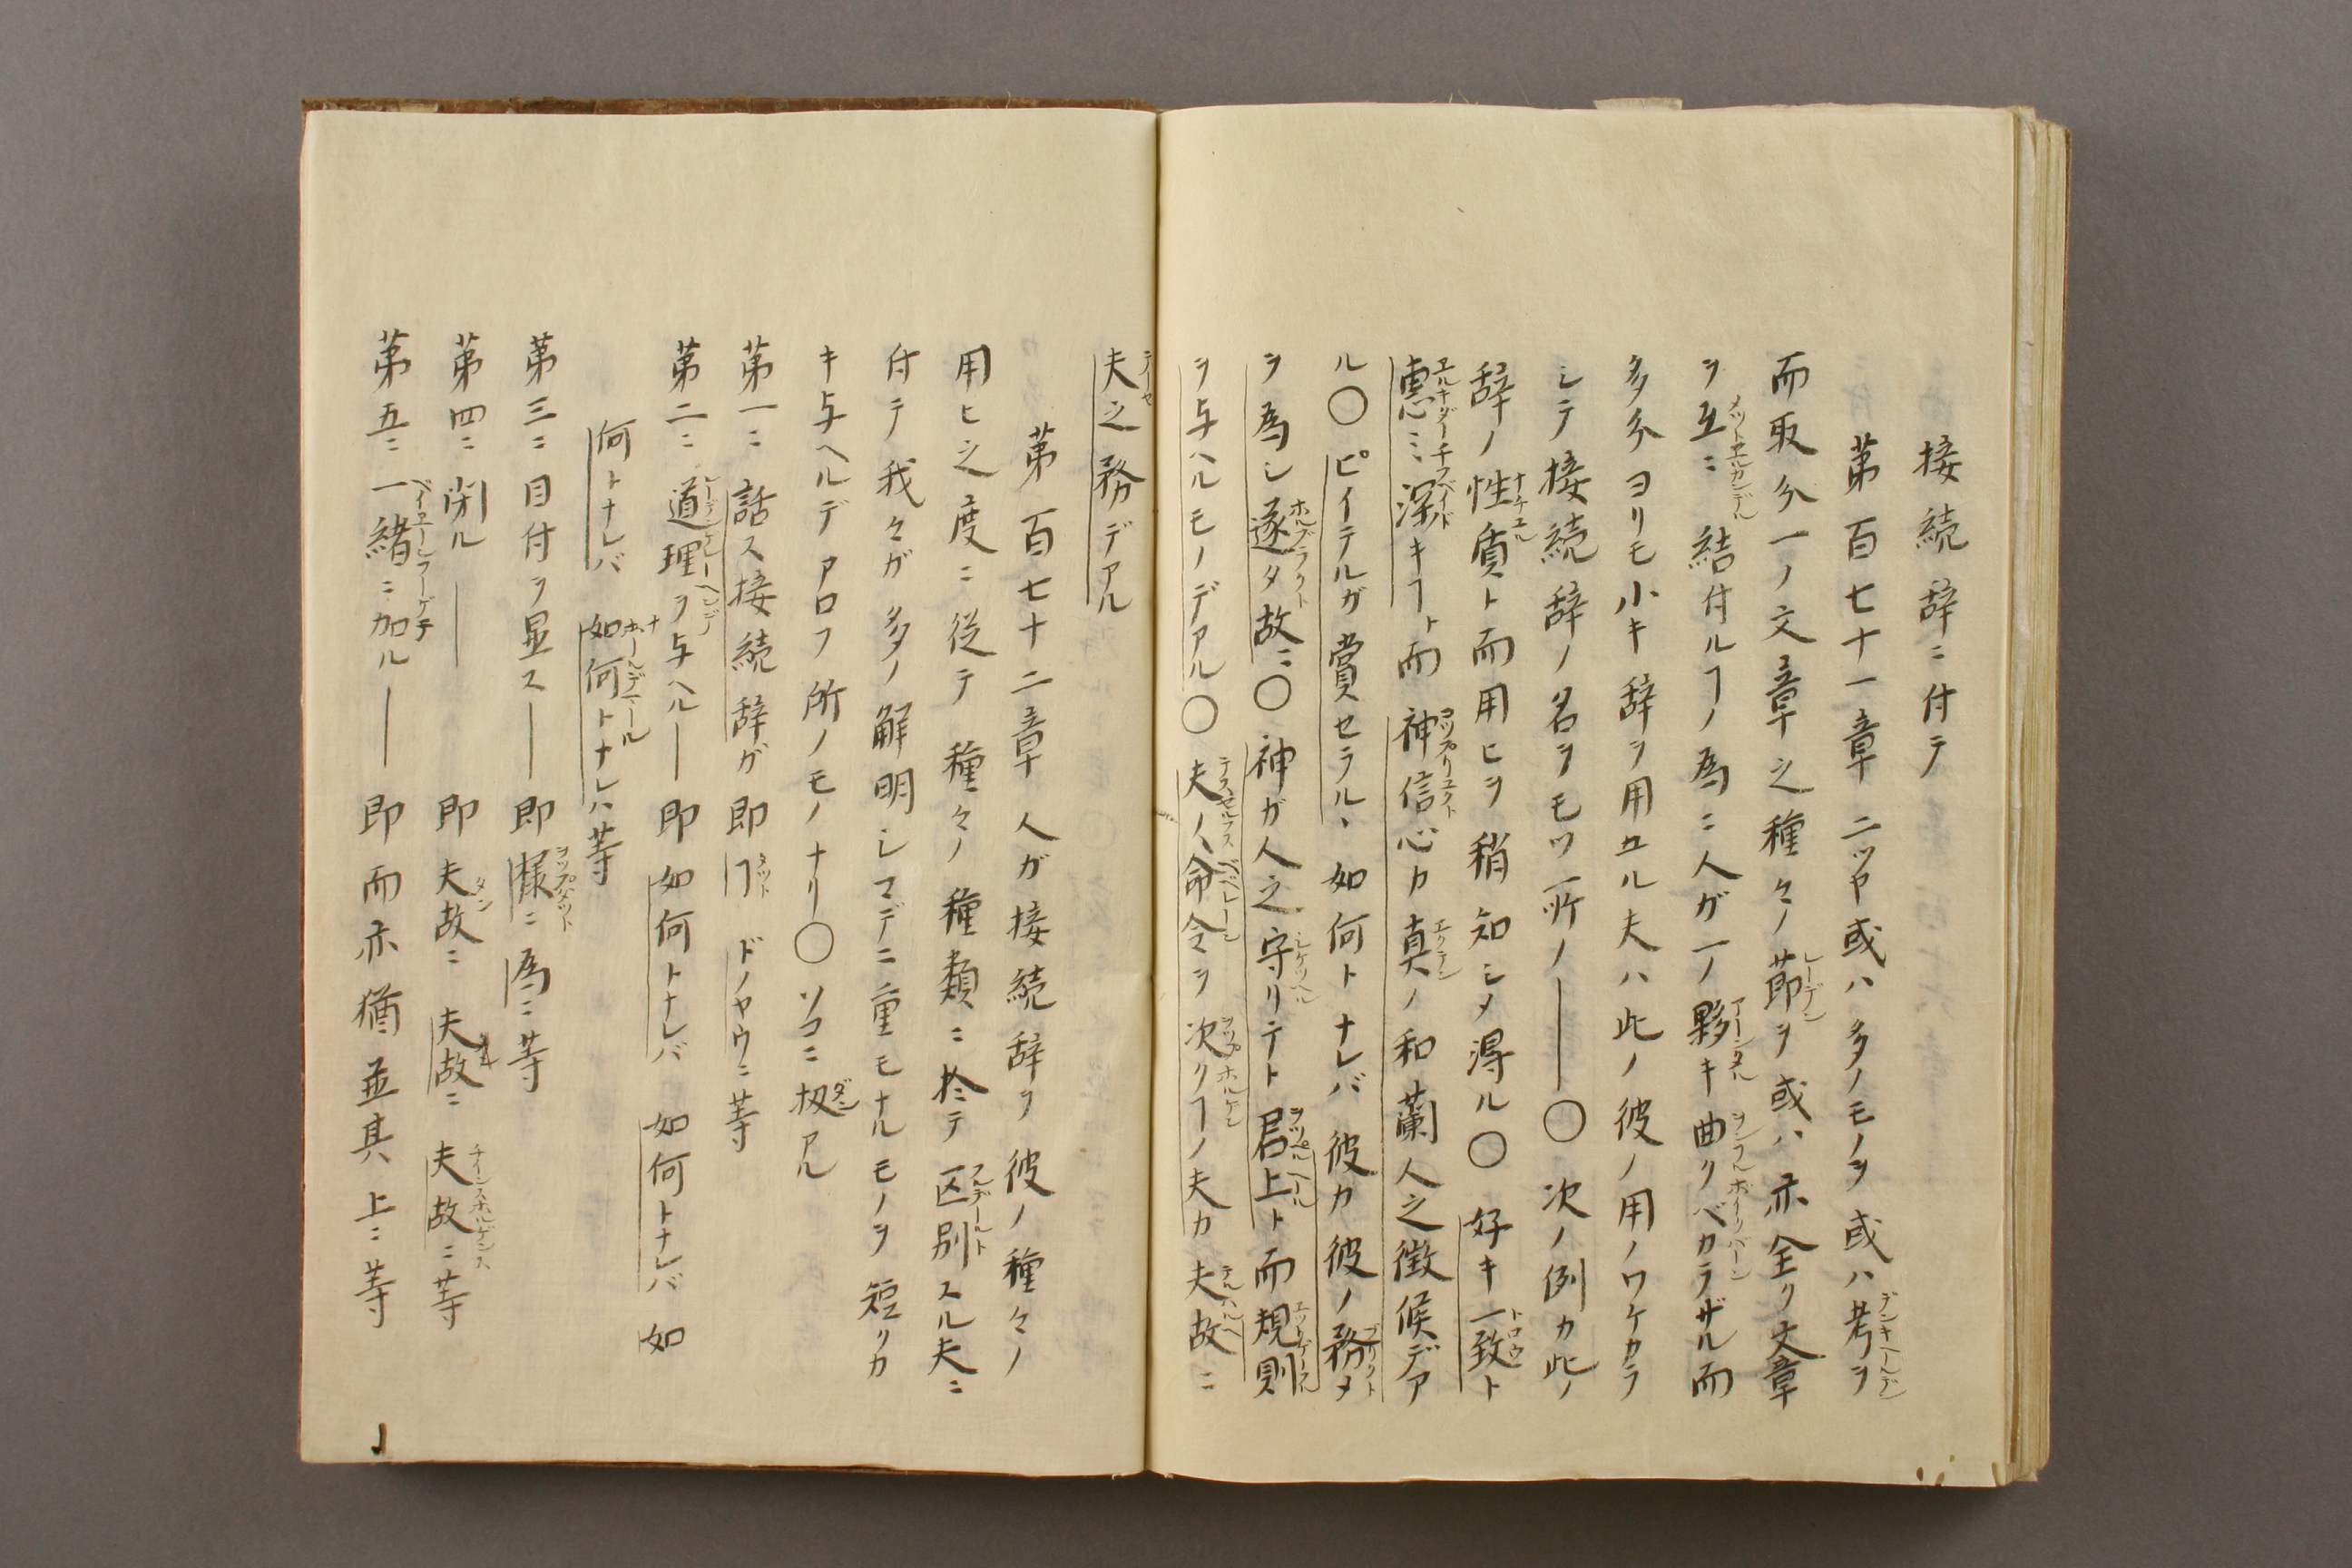 接続辞ニ付テ
第百七十一章 二ツヤ或ハ多ノモノヲ或ハ考ヲ
而取分一ノ文章之種々ノ節ヲ或ハ亦全リ文章
ヲ互ニ結付ルヿノ為ニ人ガ一ノ夥キ曲リベカラザル而
多分ヨリモ小キ辞ヲ用ヱル夫ハ此ノ彼ノ用ノワケカラ
シテ接続辞ノ名ヲモツ所ノ――〇次ノ例カ此ノ
辞ノ性質ト而用ヒヲ稍知シメ得ル〇好キ一致ト
恵ミ深キヿト而神信心カ真ノ和蘭人之徴候デア
ル〇ピイテルガ賞セラル、如何トナレバ彼カ彼ノ務メ
ヲ為シ遂タ故ニ〇神ガ人之守リテト君上ト而規則
ヲ与ハルモノデアル〇夫ノ命令ヲ次クヿノ夫カ夫故ニ
夫之務デアル
第百七十二章 人ガ接続辞ヲ彼ノ種々ノ
用ヒ之度ニ従テ種々ノ種類ニ於テ区別スル夫ニ
付テ我々ガ多ノ解明シマデニ重モナルモノヲ短リカ
キ与ヘルデアロフ所ノモノナリ〇ソコニ扨アル
第一ニ話ス接続辞ガ即ヿ ドノヤウニ等
第二ニ道理ヲ与ヘル――即如何トナレバ 如何トナレバ 如
何トナレバ 如何トナレハ等
第三ニ目付ヲ显ス――即様ニ 為ニ等
第四ニ閉ル――即夫故ニ 夫故ニ 夫故ニ等
第五ニ一緒ニ加ル――即而亦猶並其上ニ等